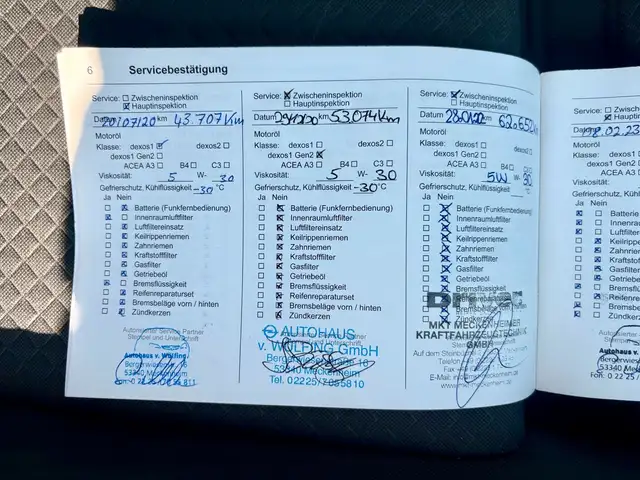 6 Servicebestätigung
Service: Zwischeninspektion
Hauptinspektion
Datum 20/07/20 km 43.707 Km
Motoröl
Klasse: dexos1 dexos2
dexos1 Gen2
ACEA A3 B4 C3
Viskosität: 5 W- 30
Gefrierschutz, Kühlflüssigkeit -30 °C
Ja Nein
Batterie (Funkfernbedienung)
Innenraumluftfilter
Luftfiltereinsatz
Keilrippenriemen
Zahnriemen
Kraftstofffilter
Gasfilter
Getriebeöl
Bremsflüssigkeit
Reifenreparaturset
Bremsbeläge vorn / hinten
Zündkerzen
Autorisierter Service Partner
Stempel und Unterschrift
Autohaus v. Wülfing
Bergerwiesen
53340 Meckenheim
Service: Zwischeninspektion
Hauptinspektion
Datum km 53.074 Km
Motoröl
Klasse: dexos1 dexos2
dexos1 Gen2
ACEA A3 B4 C3
Viskosität: 5 W- 30
Gefrierschutz, Kühlflüssigkeit -30 °C
Ja Nein
Batterie (Funkfernbedienung)
Innenraumluftfilter
Luftfiltereinsatz
Keilrippenriemen
Zahnriemen
Kraftstofffilter
Gasfilter
Getriebeöl
Bremsflüssigkeit
Reifenreparaturset
Bremsbeläge vorn / hinten
Zündkerzen
AUTOHAUS
v. WÜLFING GmbH
53340 Meckenheim
Tel. 0 22 25/7055810
Service: Zwischeninspektion
Hauptinspektion
Datum km
Motoröl
Klasse: dexos1 dexos2
dexos1 Gen2
ACEA A3 B4 C3
Viskosität: 5W W- 30
Gefrierschutz, Kühlflüssigkeit °C
Ja Nein
Batterie (Funkfernbedienung)
Innenraumluftfilter
Luftfiltereinsatz
Keilrippenriemen
Zahnriemen
Kraftstofffilter
Gasfilter
Getriebeöl
Bremsflüssigkeit
Zündkerzen
MKT MECKENHEIMER
KRAFTFAHRZEUGTECHNIK
GMBH
Service:
Datum
Motoröl
Klasse:
Viskosität:
Gefrierschutz, Kü
Ja Nein
Batterie
Innenra
Luftfilte
Keilripp
Zahnrie
Kraftsto
Gasfilte
Getrieb
Bremsf
Reifenr
Bremsb
Zündke
53340 M